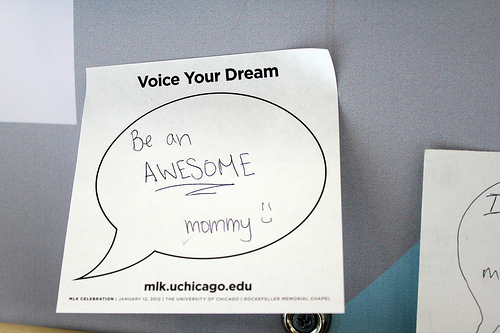 Voice Your Dream
Be an
AWESOME
mommy :)
mlk.uchicago.edu
MLK CELEBRATION | JANUARY 12, 2012 | THE UNIVERSITY OF CHICAGO | ROCKEFELLER MEMORIAL CHAPEL
I
m